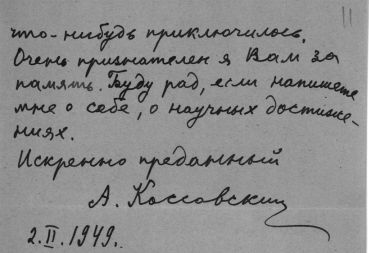 11
что-нибудь приключилось.
Очень признателен я Вам за
память. Буду рад, если напишете
мне о себе, о научных достиже-
ниях.
Искренно преданный
А. Коссовский
2.II.1949.